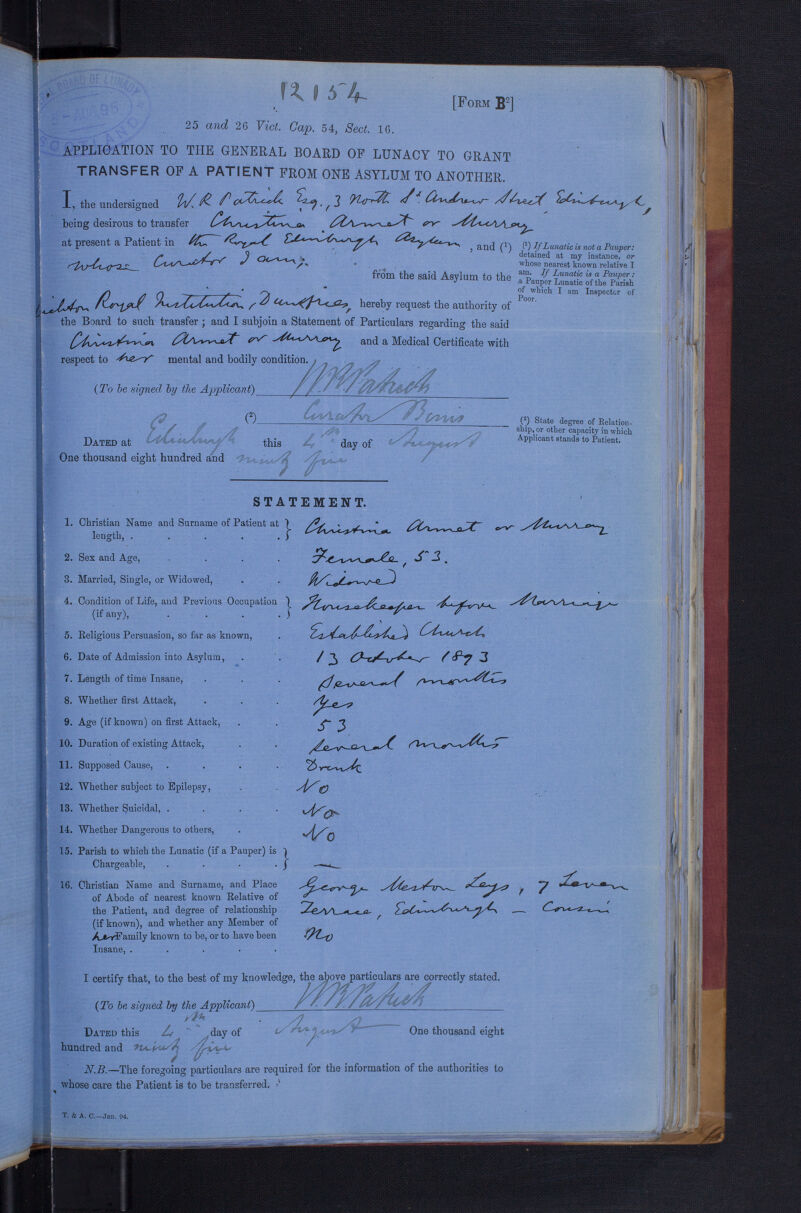 BOARD OF LUNACY
AUG 95
SCOTLAND
12154
[FORM B²]
25 and 26 Vict. Cap. 54, Sect. 16.
APPLICATION TO THE GENERAL BOARD OF LUNACY TO GRANT
TRANSFER OF A PATIENT FROM ONE ASYLUM TO ANOTHER.
I, the undersigned W. R Patrick Esq., 3 North St Andrew Street Edinburgh,
being desirous to transfer Christina Armet or Murray
at present a Patient in the Royal Edinburgh Asylum, and (¹)
whose Curator I am, from the said Asylum to the
Royal Institution, Dumfries, hereby request the authority of
the Board to such transfer ; and I subjoin a Statement of Particulars regarding the said
Christina Armet or Murray and a Medical Certificate with
respect to her mental and bodily condition.
(¹) If Lunatic is not a Pauper:
detained at my instance, or
whose nearest known relative I
am. If Lunatic is a Pauper:
a Pauper Lunatic of the Parish
of which I am Inspector of
Poor.
(To be signed by the Applicant) W. R. Patrick
(²) Curator Bonis
(²) State degree of Relation-
ship, or other capacity in which
Applicant stands to Patient.
DATED at Edinburgh this 4th day of August
One thousand eight hundred and ninety five
STATEMENT.
1. Christian Name and Surname of Patient at length, . . . . . } Christina Armet or Murray
2. Sex and Age, . . . . Female, 53.
3. Married, Single, or Widowed, . . Widowed
4. Condition of Life, and Previous Occupation (if any), . . . . } Housekeeper before Marriage
5. Religious Persuasion, so far as known, . Established Church
6. Date of Admission into Asylum, . . 13 October 1893
7. Length of time Insane, . . . Several months
8. Whether first Attack, . . . Yes
9. Age (if known) on first Attack, . . 53
10. Duration of existing Attack, . . Several months
11. Supposed Cause, . . . . Drink
12. Whether subject to Epilepsy, . . No
13. Whether Suicidal, . . . . No
14. Whether Dangerous to others, . No
15. Parish to which the Lunatic (if a Pauper) is Chargeable, . . . . } —
16. Christian Name and Surname, and Place George Meston Leys, 7 Leven
of Abode of nearest known Relative of
the Patient, and degree of relationship Terrace, Edinburgh — Cousin
(if known), and whether any Member of
her Family known to be, or to have been No
Insane, . . . . .
I certify that, to the best of my knowledge, the above particulars are correctly stated.
(To be signed by the Applicant) W. R. Patrick
DATED this 4th day of August One thousand eight
hundred and ninety five
N.B.—The foregoing particulars are required for the information of the authorities to
whose care the Patient is to be transferred.
T. & A. C.—Jan. 94.